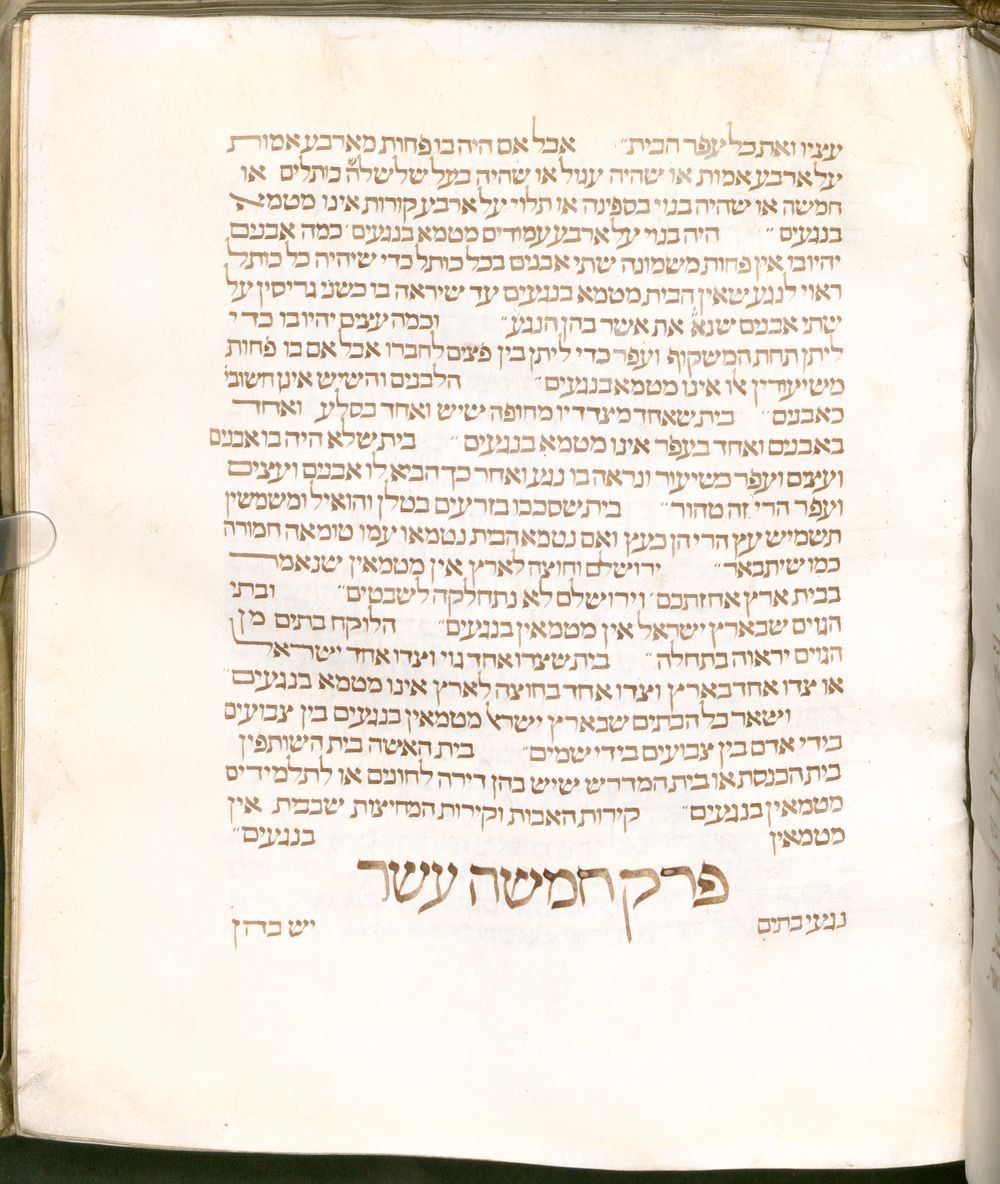 עציו ואת כל עפר הבית״ אבל אם היה בו פחות מארבע אמות
על ארבע אמות או שהיה עגול או שהיה בעל שלשלה כותלים או
חמשה או שהיה בנוי בספינה או תלוי על ארבע קורות אינו מטמא
בנגעים״ היה בנוי על ארבע עמודים מטמא בנגעים׳ כמה אבנים
יהיו בו אין פחות משמונה שתי אבנים בכל כותל כדי שיהיה כל כותל
ראוי לנגע שאין הבית מטמא בנגעים עד שיראה בו כשני גריסין על
שתי אבנים שנא׳ את אשר בהן הנגע״ וכמה עצים יהיו בו כדי
ליתן תחת המשקוף ועפר כדי ליתן בין פצים לחברו אבל אם בו פחות
משיעורין או אינו מטמא בנגעים״ הלבנים והשיש אינן חשובי׳
כאבנים״ בית שאחד מצדדיו מחופה שיש ואחד בסלע ואחד
באבנים ואחד בעפר אינו מטמא בנגעים״ בית שלא היה בו אבנים
ועצים ועפר כשיעור ונראה בו נגע ואחר כך הביא לו אבנים ועצים
ועפר הרי זה טהור״ בית שסככו בזרעים בטלן והואיל ומשמשין
תשמיש עץ הרי הן כעץ ואם נטמא הבית נטמאו עמו טומאה חמורה
כמו שיתבאר״ ירושלם וחוצה לארץ אין מטמאין שנאמר
בבית ארץ אחזתכם׳ וירושלם לא נתחלקה לשבטים״ ובתי
הגוים שבארץ ישראל אין מטמאין בנגעים״ הלוקח בתים מן
הגוים יראוה בתחלה״ בית שצדו אחד גוי וצדו אחד ישראל
או צדו אחד בארץ וצדו אחד בחוצה לארץ אינו מטמא בנגעים״
ושאר כל הבתים שבארץ ישראל מטמאין בנגעים בין צבועים
בידי אדם בין צבועים בידי שמים״ בית האשה בית השותפין
בית הכנסת או בית המדריש שיש בהן דירה לחזנים או לתלמידים
מטמאין בנגעים״ קירות האבות וקירות המחיצות שבבית אין
מטמאין בנגעים״
פרק חמשה עשר
נגעי בתים יש בהן